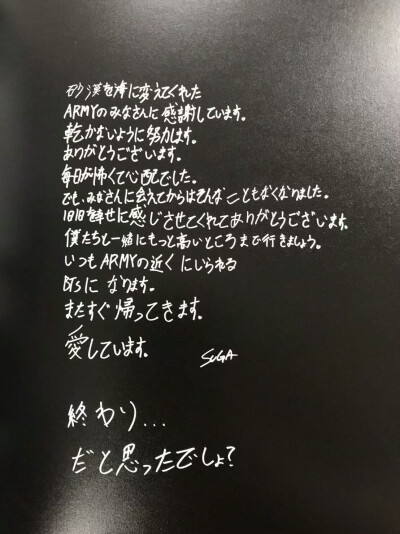 砂漠を海に変えてくれた
ARMYのみなさんに感謝しています。
乾かないように努力します。
ありがとうございます。
毎日が怖くて心配でした。
でも、みなさんに会えてからはそんなこともなくなりました。
1日1日を幸せに感じさせてくれてありがとうございます。
僕たちと一緒にもっと高いところまで行きましょう。
いつもARMYの近くにいられる
BTSになります。
またすぐ帰ってきます。
愛しています。 SUGA
終わり...
だと思ったでしょ?